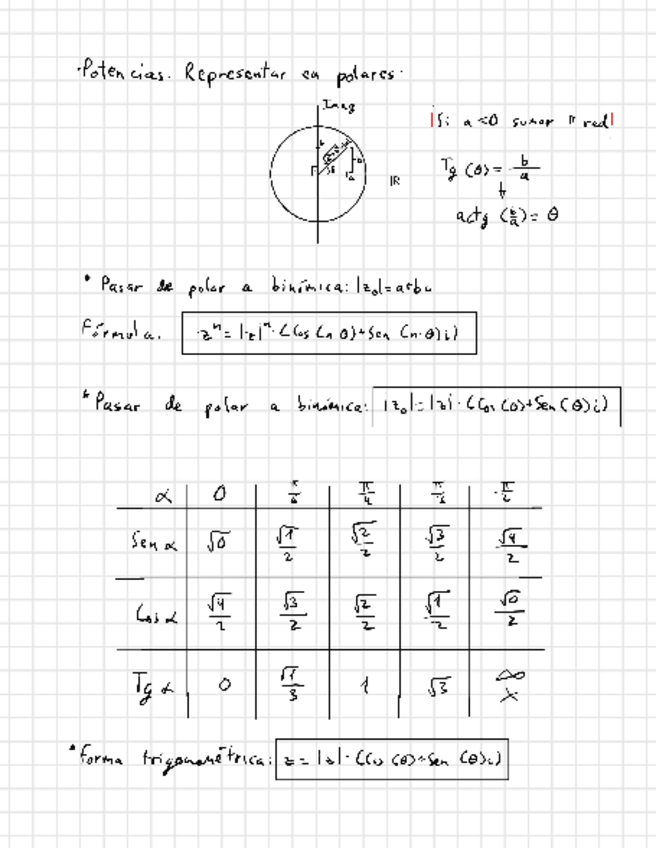 ·Potencias. Representar en polares·
Imag
|Si a<0 sumar π rad|
Tg (θ) = b/a
IR
actg (b/a) = θ
* Pasar de polar a binómica: |z₀|=a+bi
Fórmula. zⁿ = |z|ⁿ · (Cos (n θ)+Sen (n·θ)i)
* Pasar de polar a binómica: |z₀| = |z| · (Cos (θ)+Sen (θ)i)
α 0 π/6 π/4 π/3 π/2
Sen α √0 √1/2 √2/2 √3/2 √4/2
Cos α √4/2 √3/2 √2/2 √1/2 √0/2
Tg α 0 √1/3 1 √3 ∞ X
* forma trigonométrica: z = |z| · (Cos (θ)+Sen (θ)i)